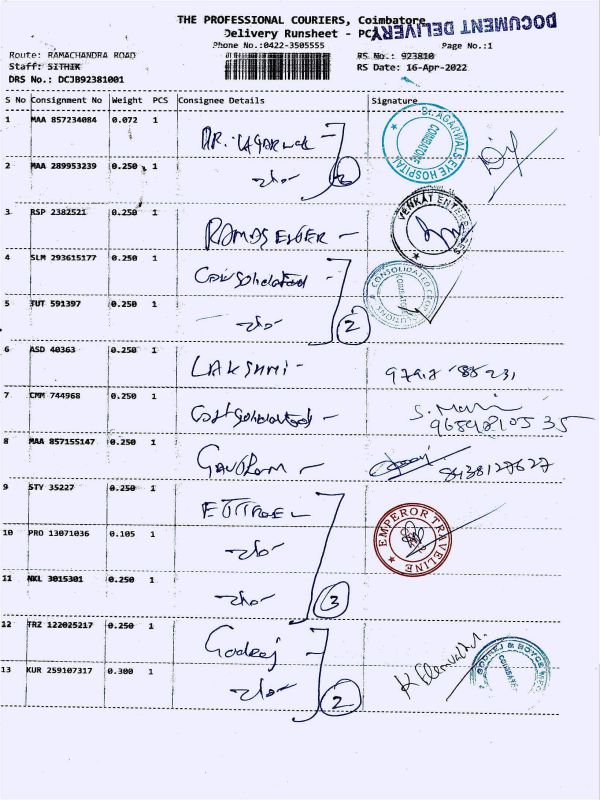 THE PROFESSIONAL COURIERS, Coimbatore
DOCUMENT DELIVERY
Delivery Runsheet - PC
Phone No.:0422-3505555
Page No.:1
Route: RAMACHANDRA ROAD
RS No.: 923810
Staff: SITHIK
RS Date: 16-Apr-2022
DRS No.: DCJB92381001
S No Consignment No Weight PCS Consignee Details Signature
1 MAA 857234084 0.072 1 DR. AGARWAL
Dr. AGARWALS EYE HOSPITAL
COIMBATORE
2 MAA 289953239 0.250 1
3 RSP 2382521 0.250 1
VENKAT ENTERPRISES
4 SLM 293615177 0.250 1 Consolidated
CONSOLIDATED
5 TUT 591397 0.250 1 2
6 ASD 40363 0.250 1 LAKSHMI
7 CMM 744968 0.250 1 Consolidated S. Mani
9659810535
8 MAA 857155147 0.250 1 8438127627
9 STY 35227 0.250 1
EMPEROR TRAVELINE
10 PRO 13071036 0.105 1
11 NKL 3015301 0.250 1 3
12 TRZ 122025217 0.250 1 Godrej
GODREJ & BOYCE MFG
13 KUR 259107317 0.300 1 2